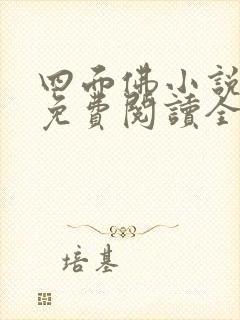 四面佛小說
免費閱讀全
培基